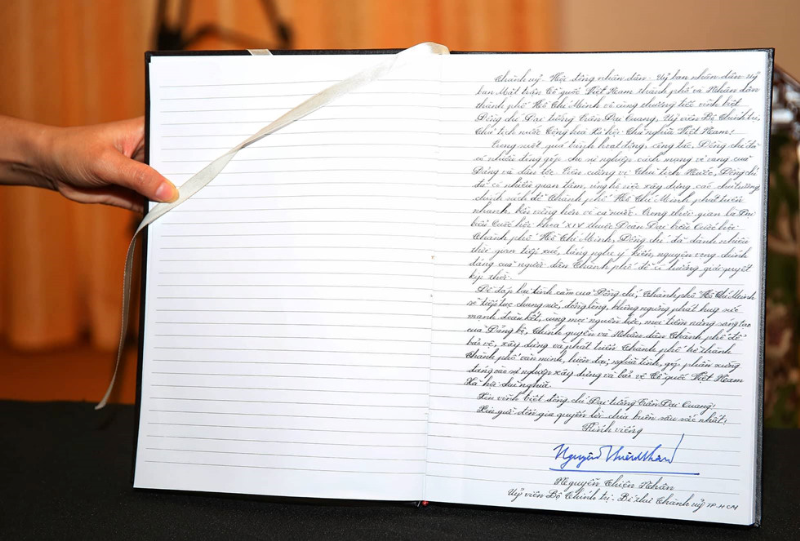 Thành uỷ, Hội đồng nhân dân, Uỷ ban nhân dân, Uỷ
ban Mặt trận Tổ quốc Việt Nam thành phố và Nhân dân
thành phố Hồ Chí Minh vô cùng thương tiếc vĩnh biệt
Đồng chí Đại tướng Trần Đại Quang, Uỷ viên Bộ Chính trị,
Chủ tịch nước Cộng hoà Xã hội Chủ nghĩa Việt Nam!
Trong suốt quá trình hoạt động, công tác, Đồng chí đã
có nhiều đóng góp cho sự nghiệp cách mạng vẻ vang của
Đảng và dân tộc. Trên cương vị Chủ tịch Nước, Đồng chí
đã có nhiều quan tâm, ủng hộ việc xây dựng các chủ trương
chính sách để Thành phố Hồ Chí Minh phát triển
nhanh, bền vững hơn vì cả nước. Trong thời gian là Đại
biểu Quốc hội khoá XIV thuộc Đoàn Đại biểu Quốc hội
thành phố Hồ Chí Minh, Đồng chí đã dành nhiều
thời gian tiếp xúc, lắng nghe ý kiến, nguyện vọng chính
đáng của người dân Thành phố để có hướng giải quyết
kịp thời.
Để đáp lại tình cảm của Đồng chí, Thành phố Hồ Chí Minh
sẽ tiếp tục chung sức, đồng lòng, không ngừng phát huy sức
mạnh đoàn kết, cùng mọi nguồn lực, mọi tiềm năng sáng tạo
của Đảng bộ, Chính quyền và Nhân dân Thành phố để
bảo vệ, xây dựng và phát triển Thành phố trở thành
Thành phố văn minh, hiện đại, nghĩa tình, góp phần xứng
đáng vào sự nghiệp xây dựng và bảo vệ Tổ quốc Việt Nam
Xã hội chủ nghĩa.
Xin vĩnh biệt đồng chí Đại tướng Trần Đại Quang!
Xin gửi đến gia quyến lời chia buồn sâu sắc nhất!
Kính viếng
Nguyễn Thiện Nhân
Nguyễn Thiện Nhân
Uỷ viên Bộ Chính trị - Bí thư Thành uỷ TP.HCM